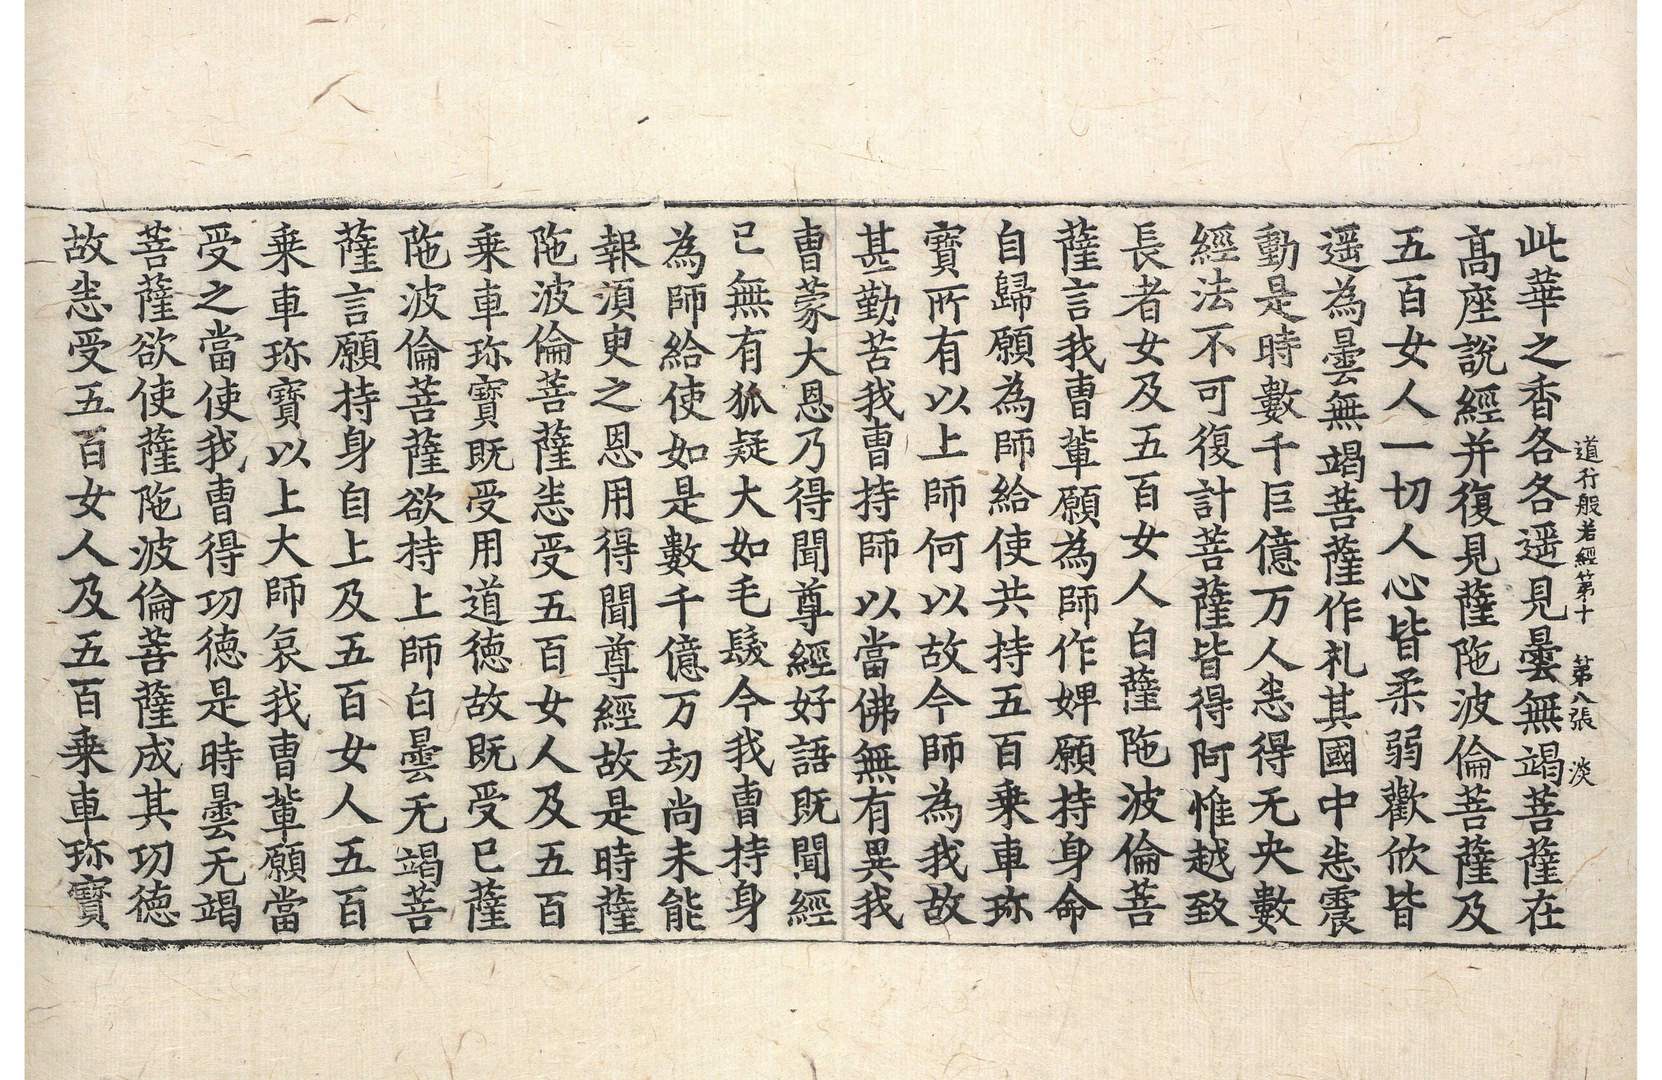 道行般若經第十 第八張 淡
此華之香各各遥見曇無竭菩薩在
髙座說經并復見薩陁波倫菩薩及
五百女人一切人心皆柔弱歡欣皆
遥為曇無竭菩薩作礼其國中悉震
動是時數千巨億万人悉得无央數
經法不可復計菩薩皆得阿惟越致
長者女及五百女人白薩陁波倫菩
薩言我曹輩願為師作婢願持身命
自歸願為師給使共持五百乗車珎
寶所有以上師何以故今師為我故
甚勤苦我曹持師以當佛無有異我
曹蒙大恩乃得聞尊經好語既聞經
已無有狐疑大如毛髮今我曹持身
為師給使如是數千億万劫尚未能
報湏臾之恩用得聞尊經故是時薩
陁波倫菩薩悉受五百女人及五百
乗車珎寶既受用道德故既受已薩
陁波倫菩薩欲持上師白曇无竭菩
薩言願持身自上及五百女人五百
乗車珎寶以上大師哀我曹輩願當
受之當使我曹得功德是時曇无竭
菩薩欲使薩陁波倫菩薩成其功德
故悉受五百女人及五百乗車珎寶